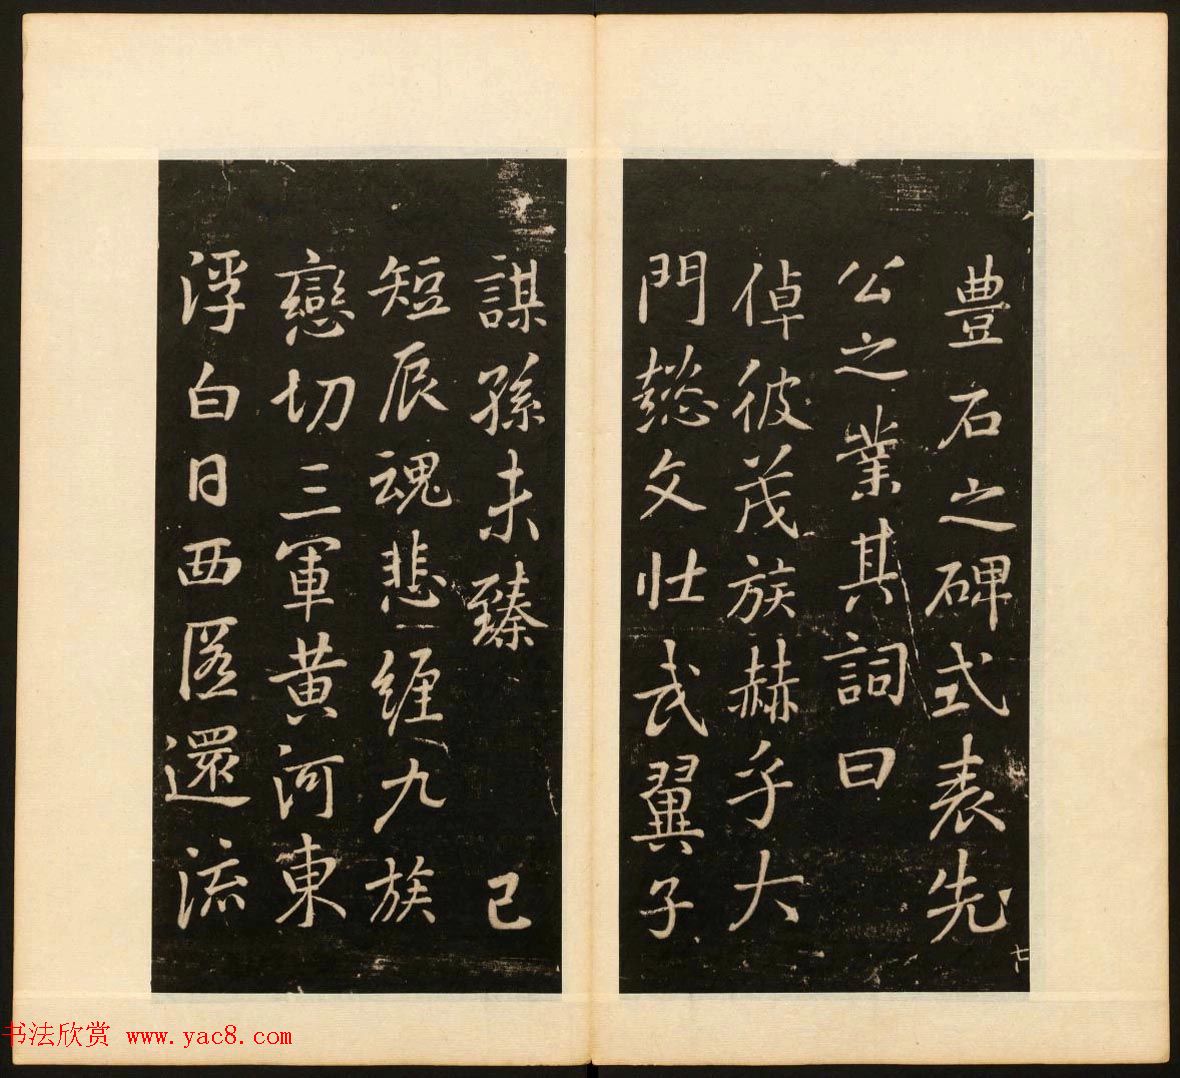 豊石之碑式表先
公之業其詞曰
倬彼茂族赫乎大
門懿文壮武翼子
謀孫未臻 已
短辰魂悲纏九族
戀切三軍黄河東
浮白日西匿還流
七
书法欣赏 www.yac8.com